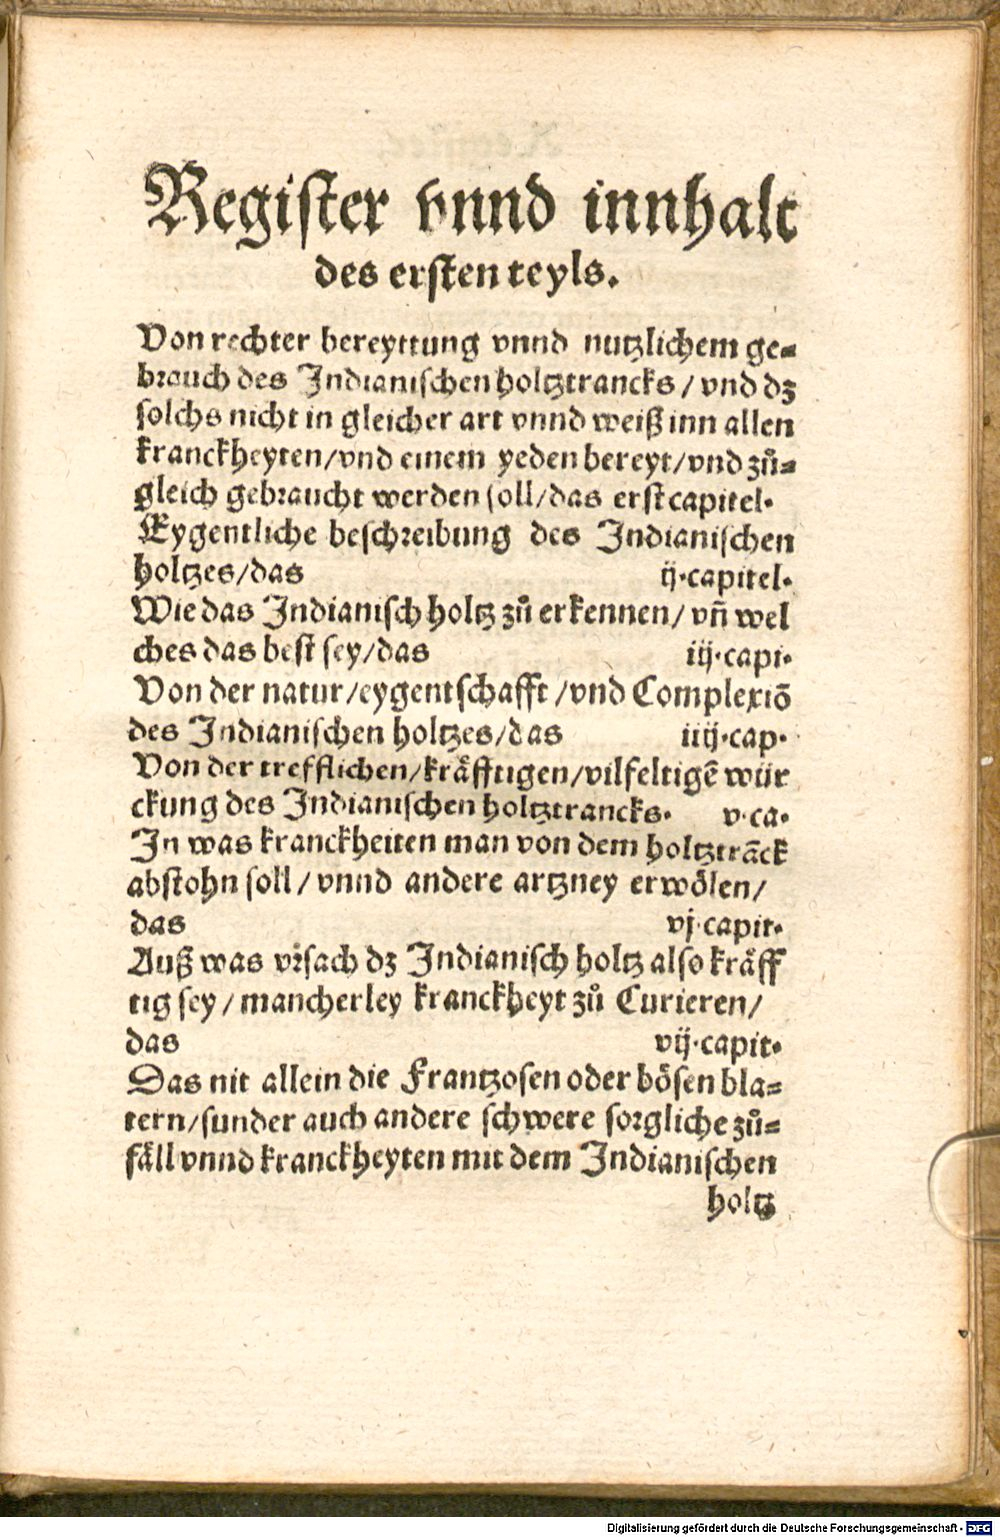 Register vnnd innhalt
des ersten teyls.
Von rechter bereyttung vnnd nutzlichem ge-
brauch des Indianischen holtztrancks / vnd dz
solchs nicht in gleicher art vnnd weiß inn allen
kranckheyten/vnd einem yeden bereyt/vnd zů-
gleich gebraucht werden soll/das erst capitel.
Eygentliche beschreibung des Indianischen
holtzes/das ij.capitel.
Wie das Indianisch holtz zů erkennen/ vñ wel
ches das best sey/das iij.capi.
Von der natur/eygentschafft /vnd Complexiō
des Indianischen holtzes/das iiij.cap.
Von der trefflichen/kräfftigen/vilfeltigē wür
ckung des Indianischen holtztrancks. v.ca.
In was kranckheiten man von dem holtztrāck
abstohn soll / vnnd andere artzney erwölen/
das vj.capit.
Auß was vrsach dz Indianisch holtz also kräff
tig sey / mancherley kranckheyt zů Curieren/
das vij.capit.
Das nit allein die Frantzosen oder bösen bla-
tern/sunder auch andere schwere sorgliche zů-
fäll vnnd kranckheyten mit dem Indianischen
holtz
Digitalisierung gefördert durch die Deutsche Forschungsgemeinschaft - DFG